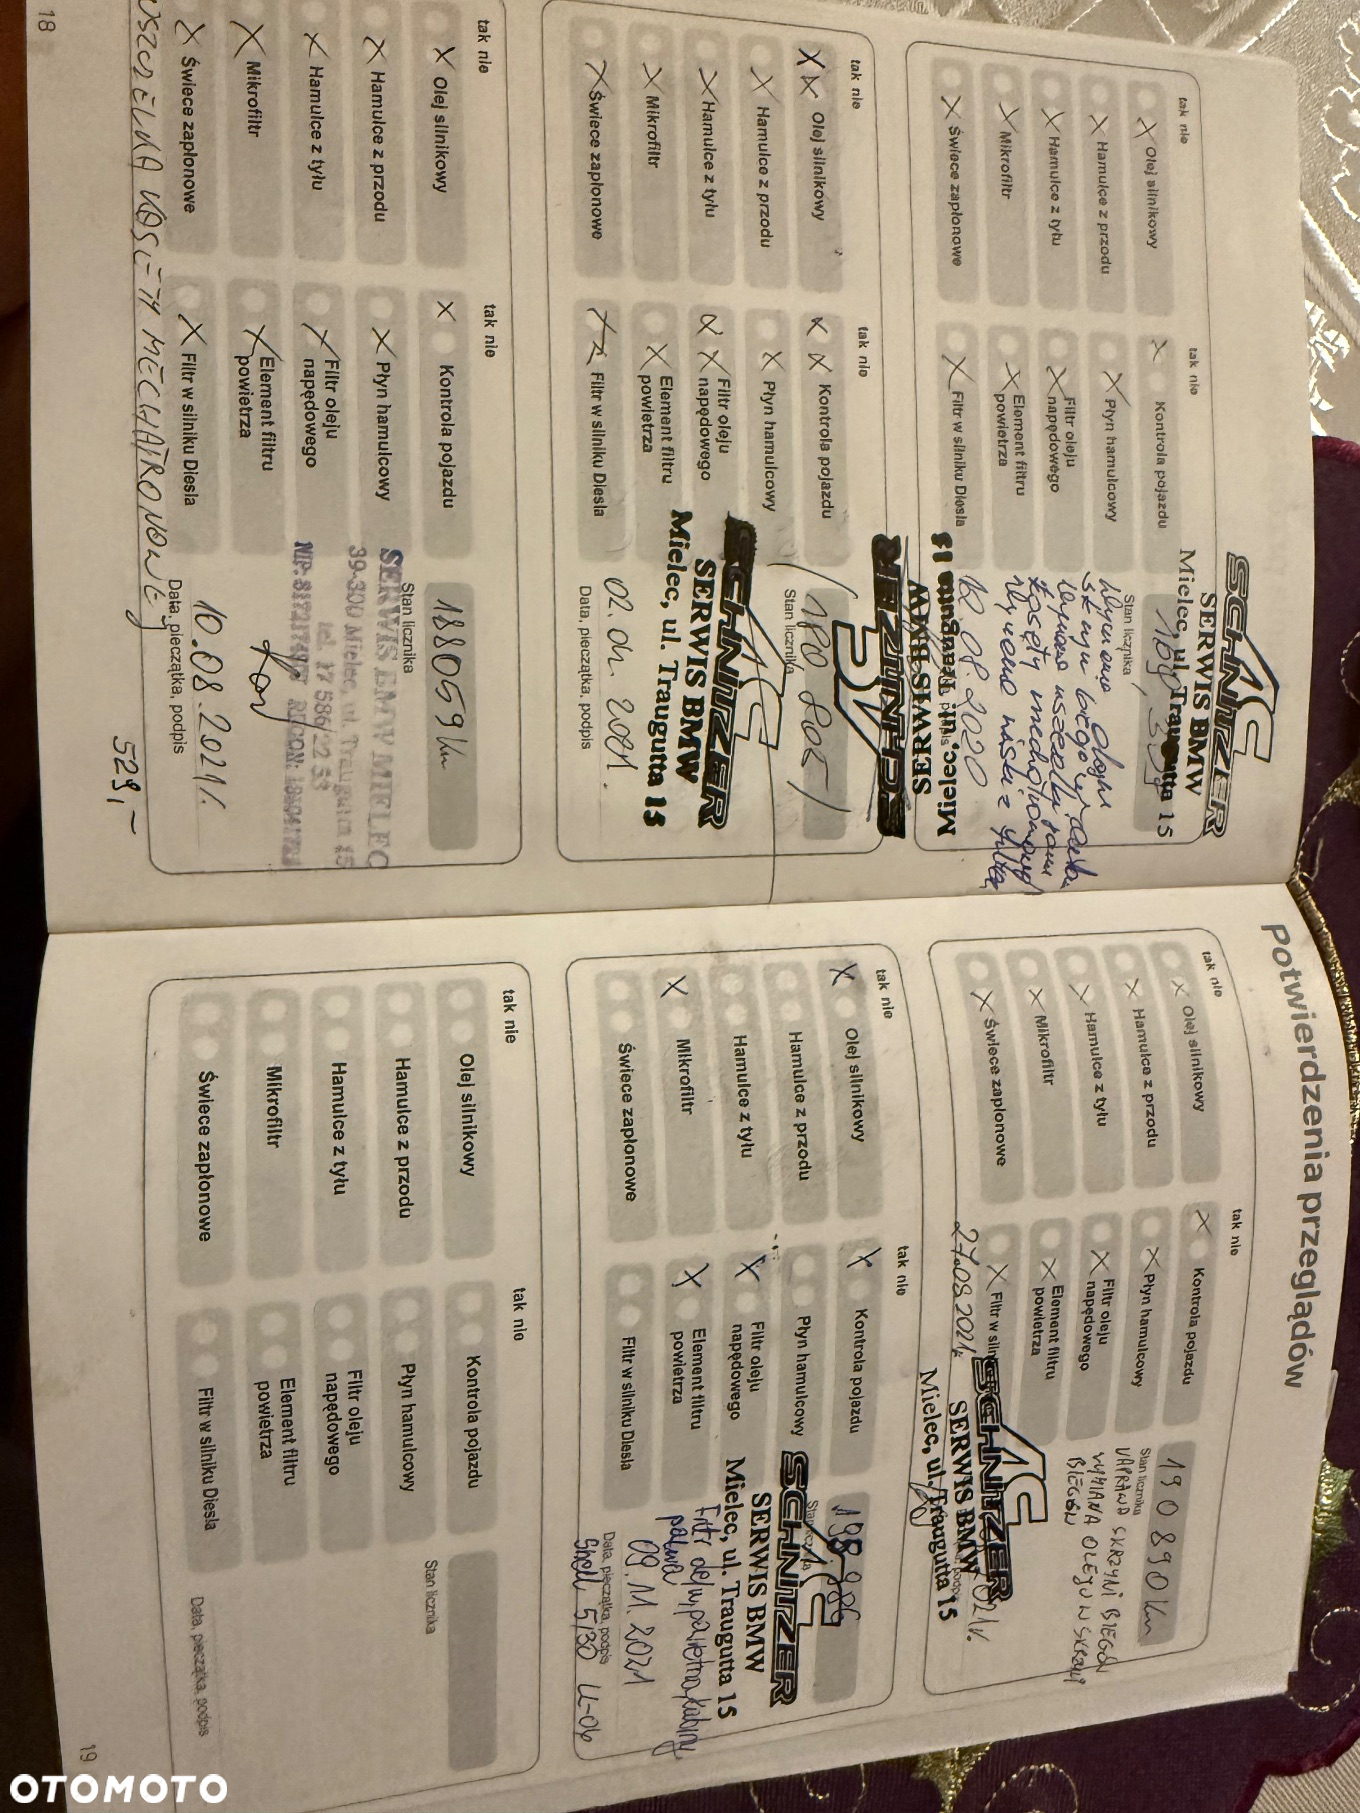 tak nie
tak nie
Olej silnikowy
Kontrola pojazdu
Hamulce z przodu
Płyn hamulcowy
Hamulce z tyłu
Filtr oleju
napędowego
Mikrofiltr
Element filtru
powietrza
Świece zapłonowe
Filtr w silniku Diesla
Stan licznika
SCHNITZER
SERWIS BMW
Mielec, ul. Traugutta 15
Wymiana oleju
12.08.2020
SERWIS BMW
Mielec, ul. Traugutta 15
tak nie
tak nie
Olej silnikowy
Kontrola pojazdu
Hamulce z przodu
Płyn hamulcowy
Hamulce z tyłu
Filtr oleju
napędowego
Mikrofiltr
Element filtru
powietrza
Świece zapłonowe
Filtr w silniku Diesla
180,805
Stan licznika
AC
SCHNITZER
SERWIS BMW
Mielec, ul. Traugutta 15
02.04.2021.
Data, pieczątka, podpis
tak nie
tak nie
Olej silnikowy
Kontrola pojazdu
Hamulce z przodu
Płyn hamulcowy
Hamulce z tyłu
Filtr oleju
napędowego
Mikrofiltr
Element filtru
powietrza
Świece zapłonowe
Filtr w silniku Diesla
188059 km
Stan licznika
SERWIS BMW MIELEC
39-300 Mielec, ul. Traugutta 15
10.08.2021r.
Data, pieczątka, podpis
USZCZELKA KOŚĆ-Y MECHATRONOWEJ
529,-
18
Potwierdzenia przeglądów
tak nie
tak nie
Olej silnikowy
Kontrola pojazdu
Hamulce z przodu
Płyn hamulcowy
Hamulce z tyłu
Filtr oleju
napędowego
Mikrofiltr
Element filtru
powietrza
Świece zapłonowe
Filtr w siln
190890 km
Stan licznika
NAPRAWA SKRZYNI BIEGÓW
WYMIANA OLEJU W SKRZYNI
BIEGÓW
27.09.2021r.
AC
SCHNITZER
SERWIS BMW
Mielec, ul. Traugutta 15
tak nie
tak nie
Olej silnikowy
Kontrola pojazdu
Hamulce z przodu
Płyn hamulcowy
Hamulce z tyłu
Filtr oleju
napędowego
Mikrofiltr
Element filtru
powietrza
Świece zapłonowe
Filtr w silniku Diesla
198.986
AC
SCHNITZER
SERWIS BMW
Mielec, ul. Traugutta 15
Filtr olej, powietrza, kabiny
paliwa
09.11.2021
Data, pieczątka, podpis
Shell 5/30 LL-04
tak nie
tak nie
Olej silnikowy
Kontrola pojazdu
Hamulce z przodu
Płyn hamulcowy
Hamulce z tyłu
Filtr oleju
napędowego
Mikrofiltr
Element filtru
powietrza
Świece zapłonowe
Filtr w silniku Diesla
Stan licznika
Data, pieczątka, podpis
19
OTOMOTO